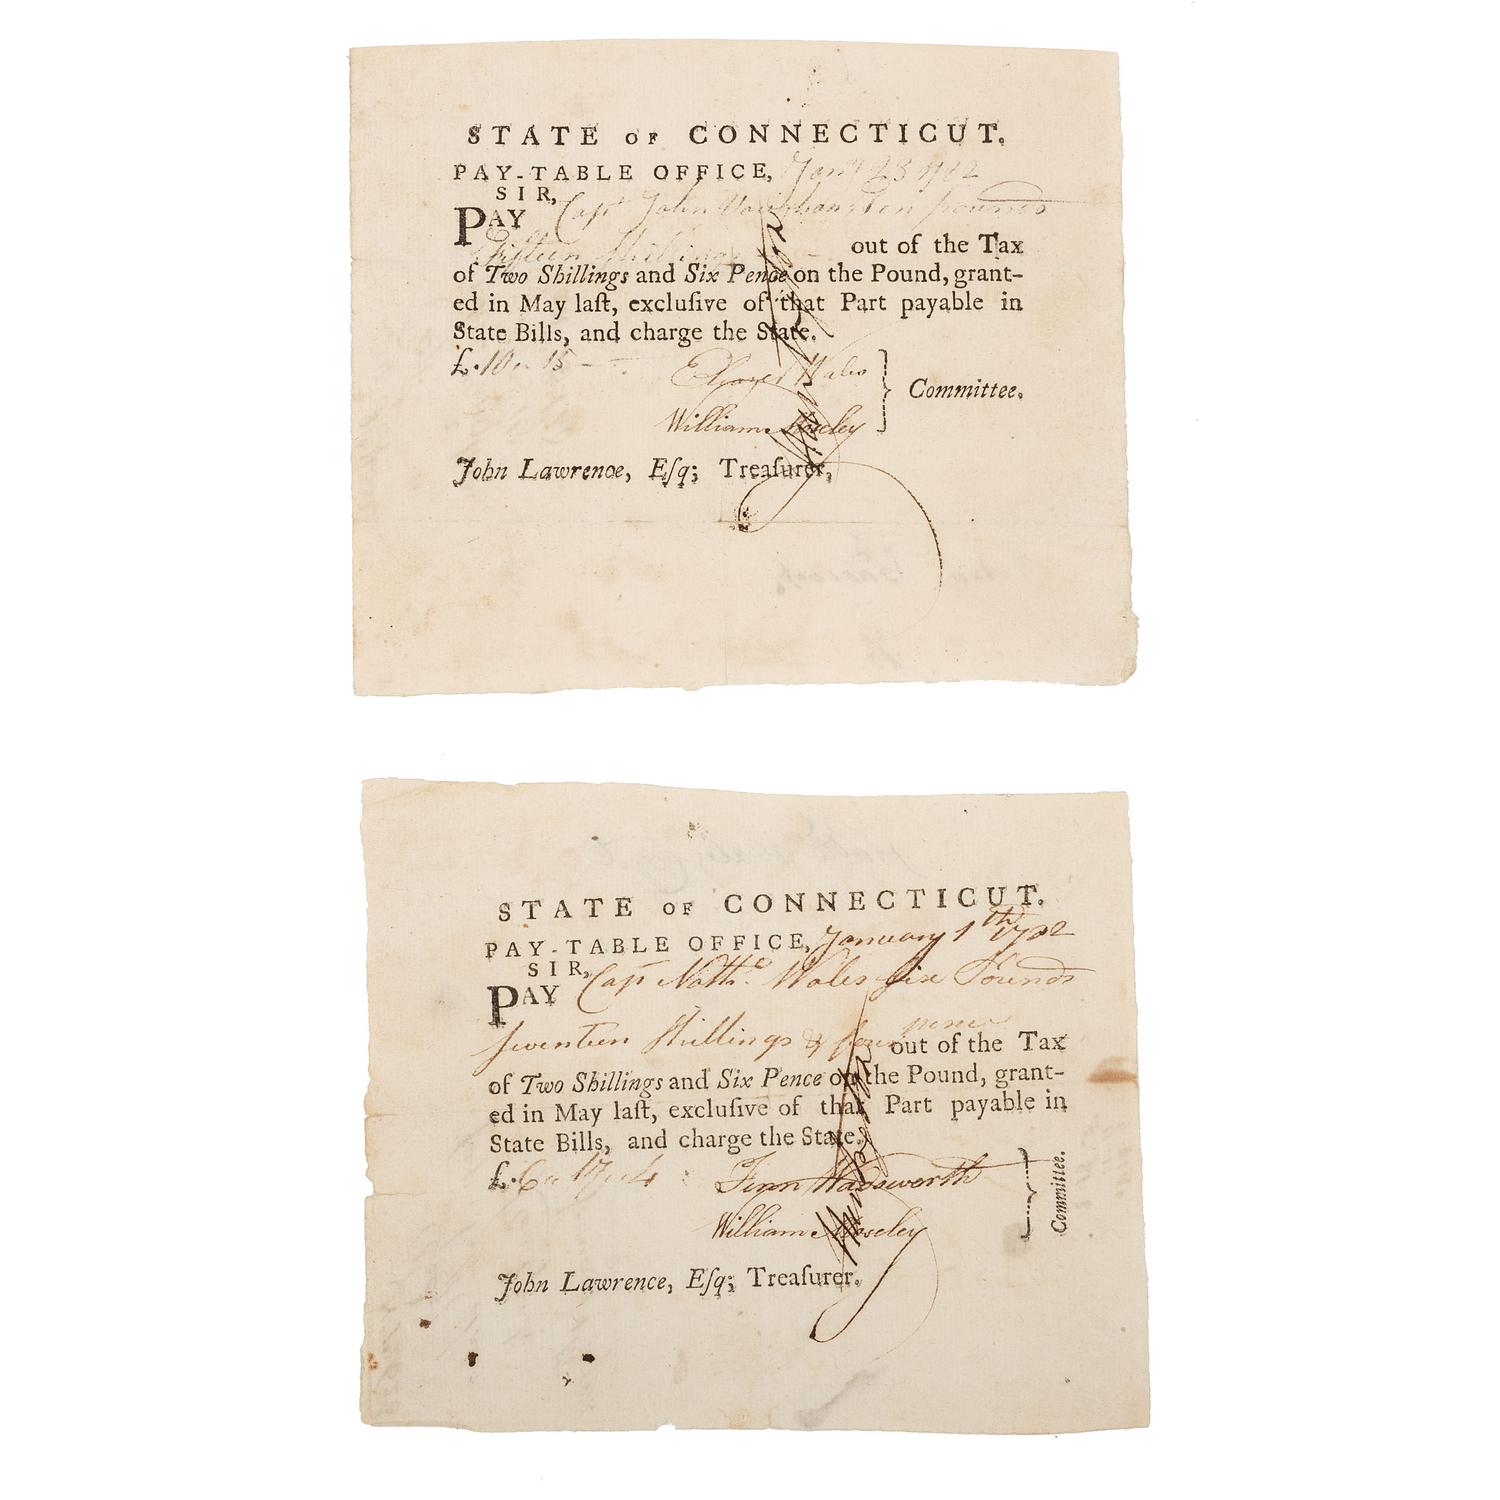 STATE OF CONNECTICUT.
PAY-TABLE OFFICE, Janʸ 23 1782
SIR,
PAY Capt John ten pounds
Fifteen Shillings out of the Tax
of Two Shillings and Six Pence on the Pound, grant-
ed in May laſt, excluſive of that Part payable in
State Bills, and charge the State.
£.10 15
Wales
William Moseley
Committee.
John Lawrence, Eſq; Treaſurer,
STATE OF CONNECTICUT.
PAY-TABLE OFFICE, January 1th 1782
SIR,
PAY Capt Nathˡ Wales six Pounds
seventeen Shillings & four pence out of the Tax
of Two Shillings and Six Pence on the Pound, grant-
ed in May laſt, excluſive of that Part payable in
State Bills, and charge the State.
£.6 17 4
Fenn Wadsworth
William Moseley
Committee.
John Lawrence, Eſq; Treaſurer.